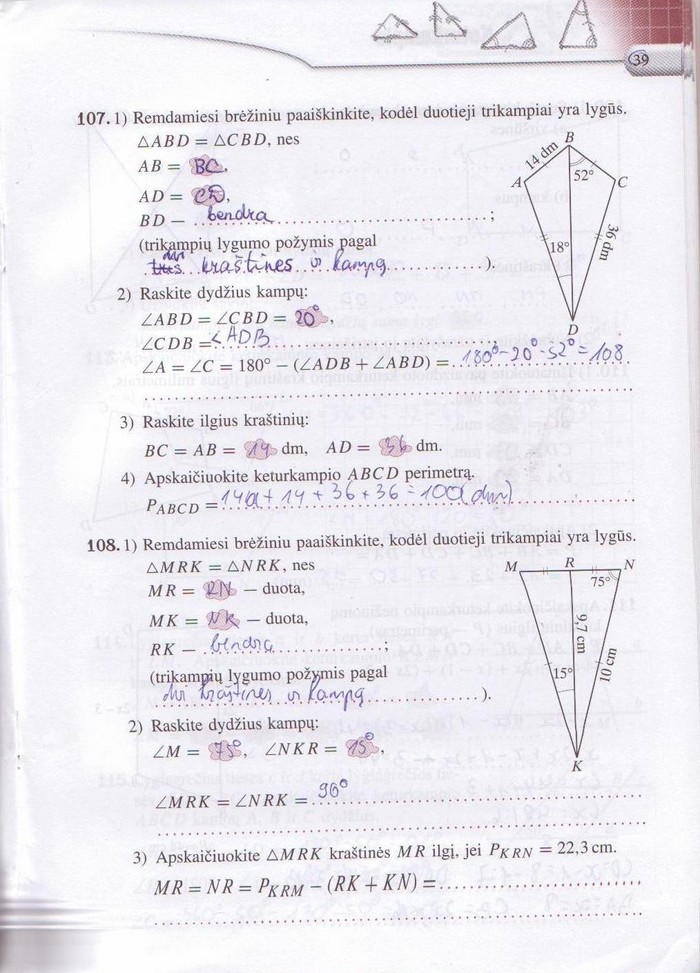 39
107. 1) Remdamiesi brėžiniu paaiškinkite, kodėl duotieji trikampiai yra lygūs.
△ABD = △CBD, nes
AB = BC,
AD = CD,
BD – bendra ;
(trikampių lygumo požymis pagal
dvi
tris kraštines ir kampą ).
B
14 dm
52°
A
C
18°
36 dm
D
2) Raskite dydžius kampų:
∠ABD = ∠CBD = 20°,
∠CDB = <ADB
∠A = ∠C = 180° − (∠ADB + ∠ABD) = 180° - 20° - 52° = 108
3) Raskite ilgius kraštinių:
BC = AB = 14 dm, AD = 36 dm.
4) Apskaičiuokite keturkampio ABCD perimetrą.
P ABCD = 14 + 14 + 36 + 36 = 100 (dm)
108. 1) Remdamiesi brėžiniu paaiškinkite, kodėl duotieji trikampiai yra lygūs.
△MRK = △NRK, nes
MR = RN – duota,
MK = NK – duota,
RK – bendra ;
(trikampių lygumo požymis pagal
dvi kraštines ir kampą ).
M R N
75°
9,7 cm
15°
10 cm
K
2) Raskite dydžius kampų:
∠M = 75°, ∠NKR = 15°,
∠MRK = ∠NRK = 90°
3) Apskaičiuokite △MRK kraštinės MR ilgį, jei P KRN = 22,3 cm.
MR = NR = P KRM − (RK + KN) =